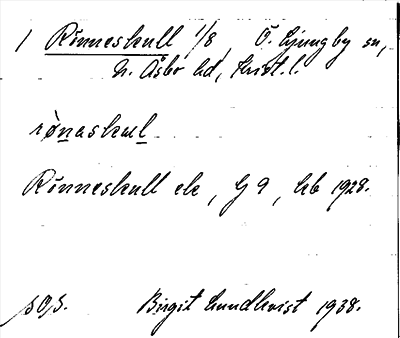 1 Rönneskull 1/8, Ö. Ljungby sn,
N. Åsbo hd, Krist. l.
rö̀naskul
Rönneskull ek, G 9, kb 1928.
s 0,5. Birgit Lundkvist 1938.